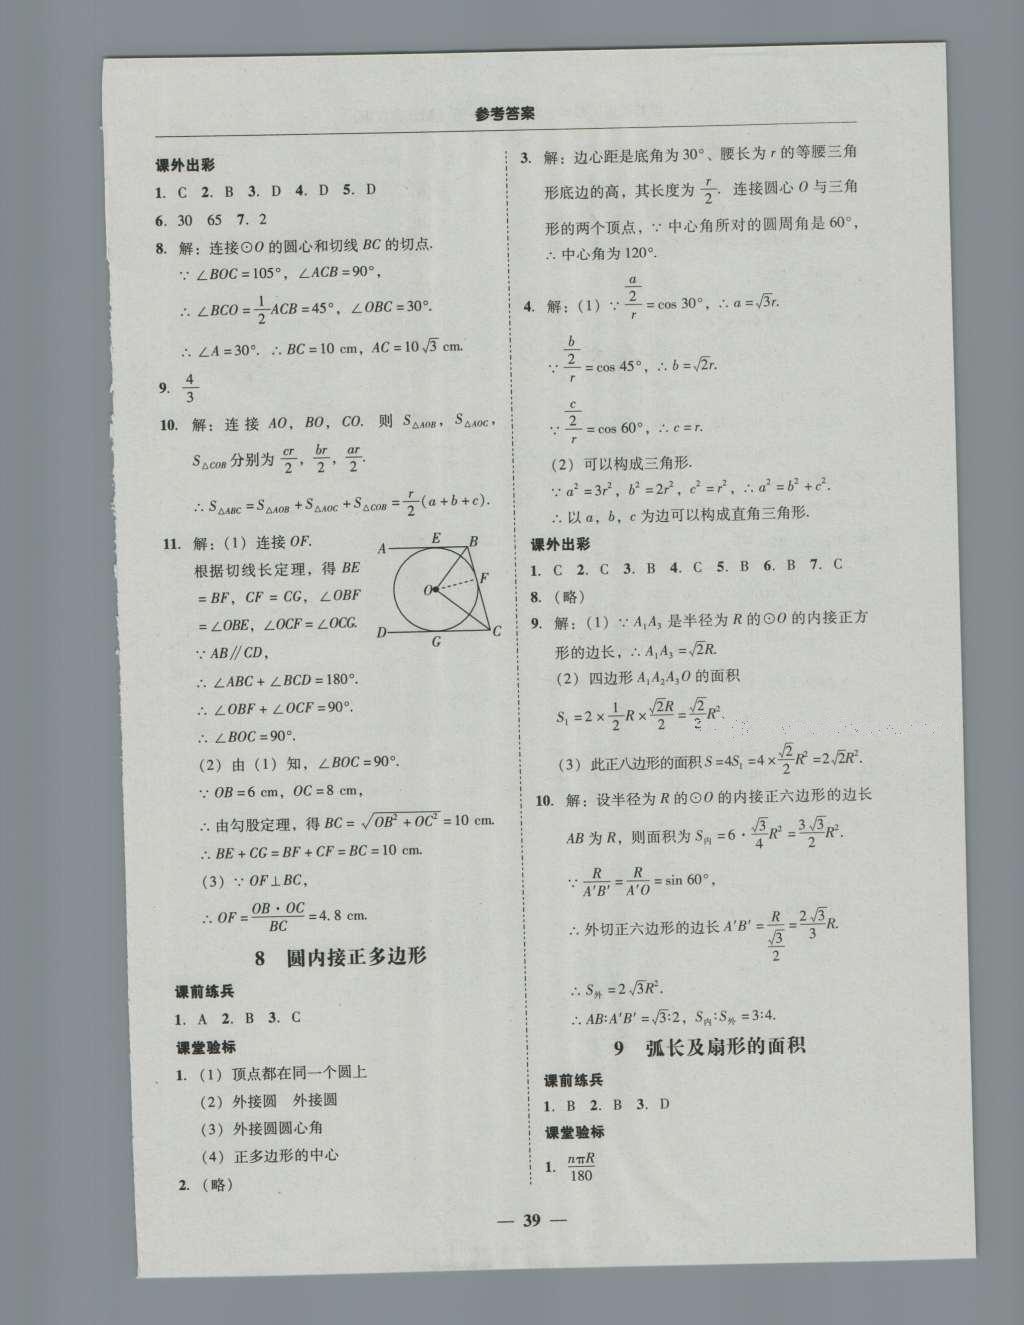 参考答案
课外出彩
1. C 2. B 3. D 4. D 5. D
6. 30 65 7. 2
8. 解：连接⊙O 的圆心和切线 BC 的切点.
∵ ∠BOC = 105°，∠ACB = 90°，
∴ ∠BCO = \frac{1}{2}ACB = 45°，∠OBC = 30°.
∴ ∠A = 30°. ∴ BC = 10 cm，AC = 10√3 cm.
9. \frac{4}{3}
10. 解：连接 AO，BO，CO. 则 S△AOB，S△AOC，
S△COB 分别为 \frac{cr}{2}，\frac{br}{2}，\frac{ar}{2}.
∴ S△ABC = S△AOB + S△AOC + S△COB = \frac{r}{2}(a + b + c).
11. 解：(1) 连接 OF.
根据切线长定理，得 BE
= BF，CF = CG，∠OBF
= ∠OBE，∠OCF = ∠OCG.
∵ AB∥CD，
∴ ∠ABC + ∠BCD = 180°.
∴ ∠OBF + ∠OCF = 90°.
∴ ∠BOC = 90°.
A E B
O F
D G C
(2) 由 (1) 知，∠BOC = 90°.
∵ OB = 6 cm，OC = 8 cm，
∴ 由勾股定理，得 BC = √(OB² + OC²) = 10 cm.
∴ BE + CG = BF + CF = BC = 10 cm.
(3) ∵ OF⊥BC，
∴ OF = \frac{OB·OC}{BC} = 4.8 cm.
8 圆内接正多边形
课前练兵
1. A 2. B 3. C
课堂验标
1. (1) 顶点都在同一个圆上
(2) 外接圆 外接圆
(3) 外接圆圆心角
(4) 正多边形的中心
2. (略)
3. 解：边心距是底角为 30°、腰长为 r 的等腰三角
形底边的高，其长度为 \frac{r}{2}. 连接圆心 O 与三角
形的两个顶点，∵ 中心角所对的圆周角是 60°，
∴ 中心角为 120°.
4. 解：(1) ∵ \frac{\frac{a}{2}}{r} = cos 30°，∴ a = √3r.
∵ \frac{\frac{b}{2}}{r} = cos 45°，∴ b = √2r.
∵ \frac{\frac{c}{2}}{r} = cos 60°，∴ c = r.
(2) 可以构成三角形.
∵ a² = 3r²，b² = 2r²，c² = r²，∴ a² = b² + c².
∴ 以 a，b，c 为边可以构成直角三角形.
课外出彩
1. C 2. C 3. B 4. C 5. B 6. B 7. C
8. (略)
9. 解：(1) ∵ A₁A₃ 是半径为 R 的⊙O 的内接正方
形的边长，∴ A₁A₃ = √2R.
(2) 四边形 A₁A₂A₃O 的面积
S₁ = 2 × \frac{1}{2}R × \frac{√2R}{2} = \frac{√2}{2}R².
(3) 此正八边形的面积 S = 4S₁ = 4 × \frac{√2}{2}R² = 2√2R².
10. 解：设半径为 R 的⊙O 的内接正六边形的边长
AB 为 R，则面积为 S内 = 6 · \frac{√3}{4}R² = \frac{3√3}{2}R².
∵ \frac{R}{A′B′} = \frac{R}{A′O} = sin 60°，
∴ 外切正六边形的边长 A′B′ = \frac{R}{\frac{√3}{2}} = \frac{2√3}{3}R.
∴ S外 = 2√3R².
∴ AB∶A′B′ = √3∶2，S内∶S外 = 3∶4.
9 弧长及扇形的面积
课前练兵
1. B 2. B 3. D
课堂验标
1. \frac{nπR}{180}
— 39 —